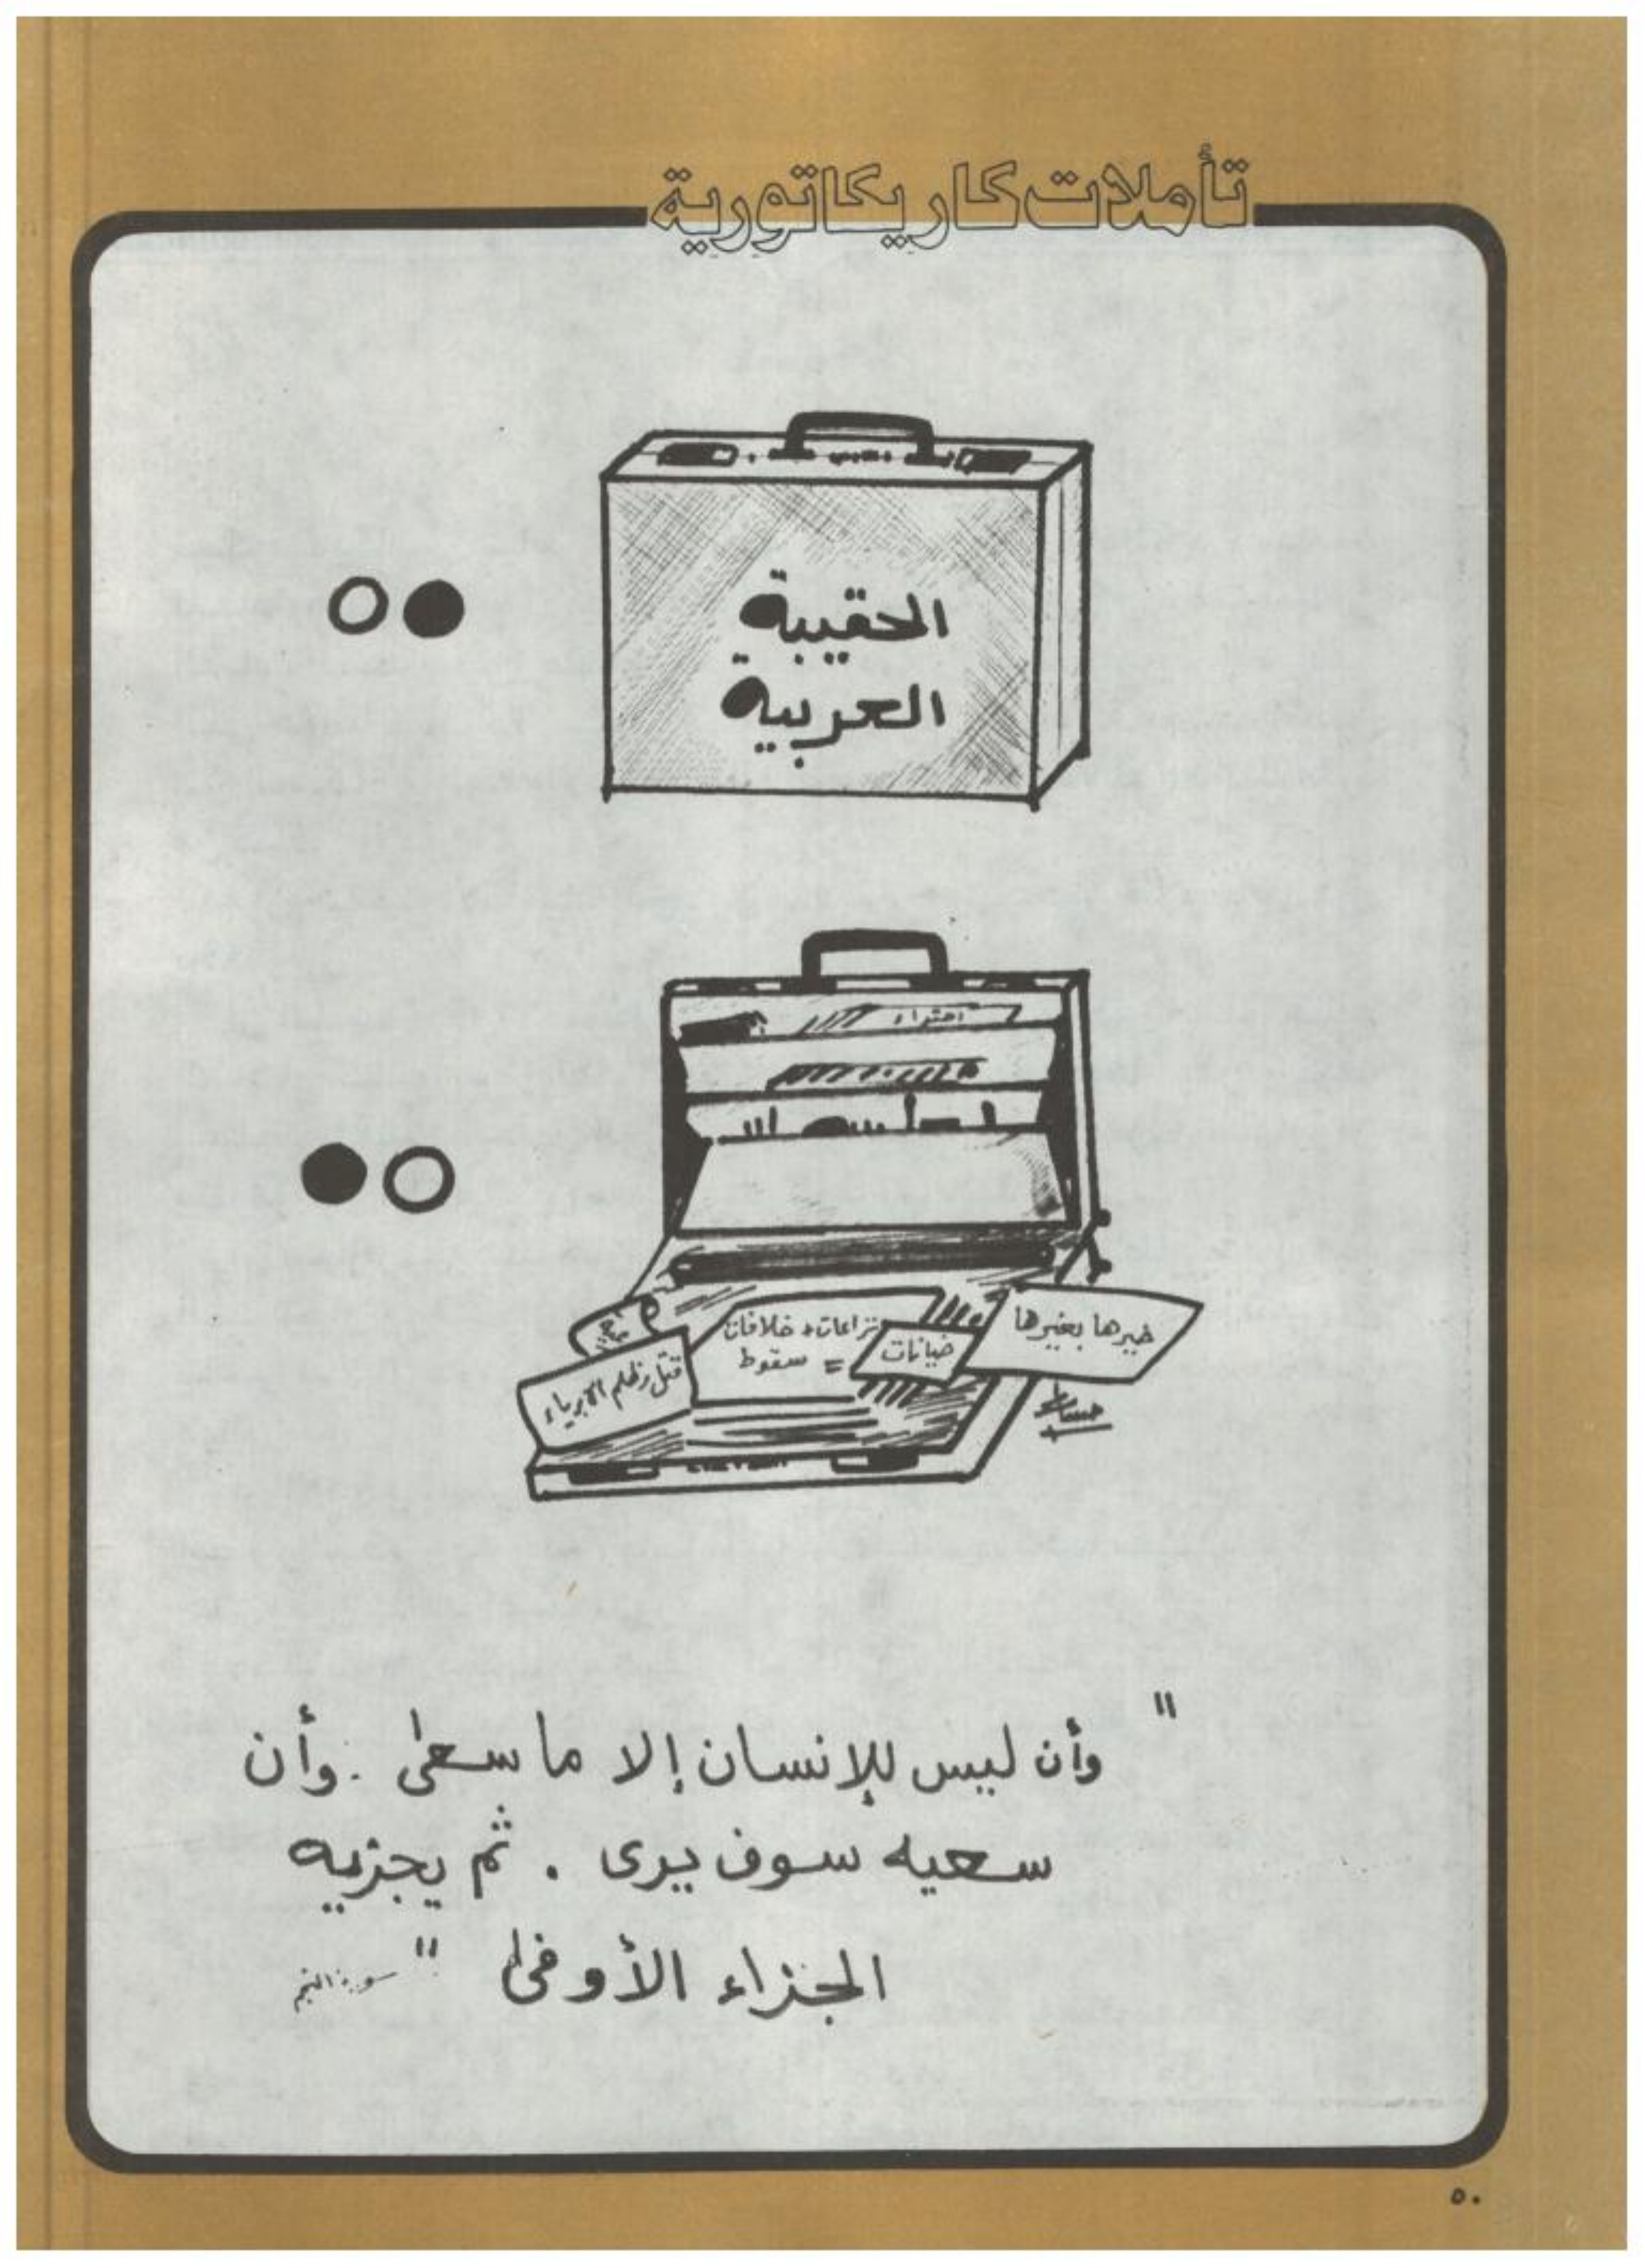 تأملات كاريكاتورية
الحقيبة
العربية
خيرها بغيرها
خيانات
نزاعات + خلافات
= سقوط
قتل وظلم الأبرياء
"وأن ليس للإنسان إلا ما سعى . وأن
سعيه سوف يرى . ثم يجزيه
الجزاء الأوفى" سورة النجم
٥٠